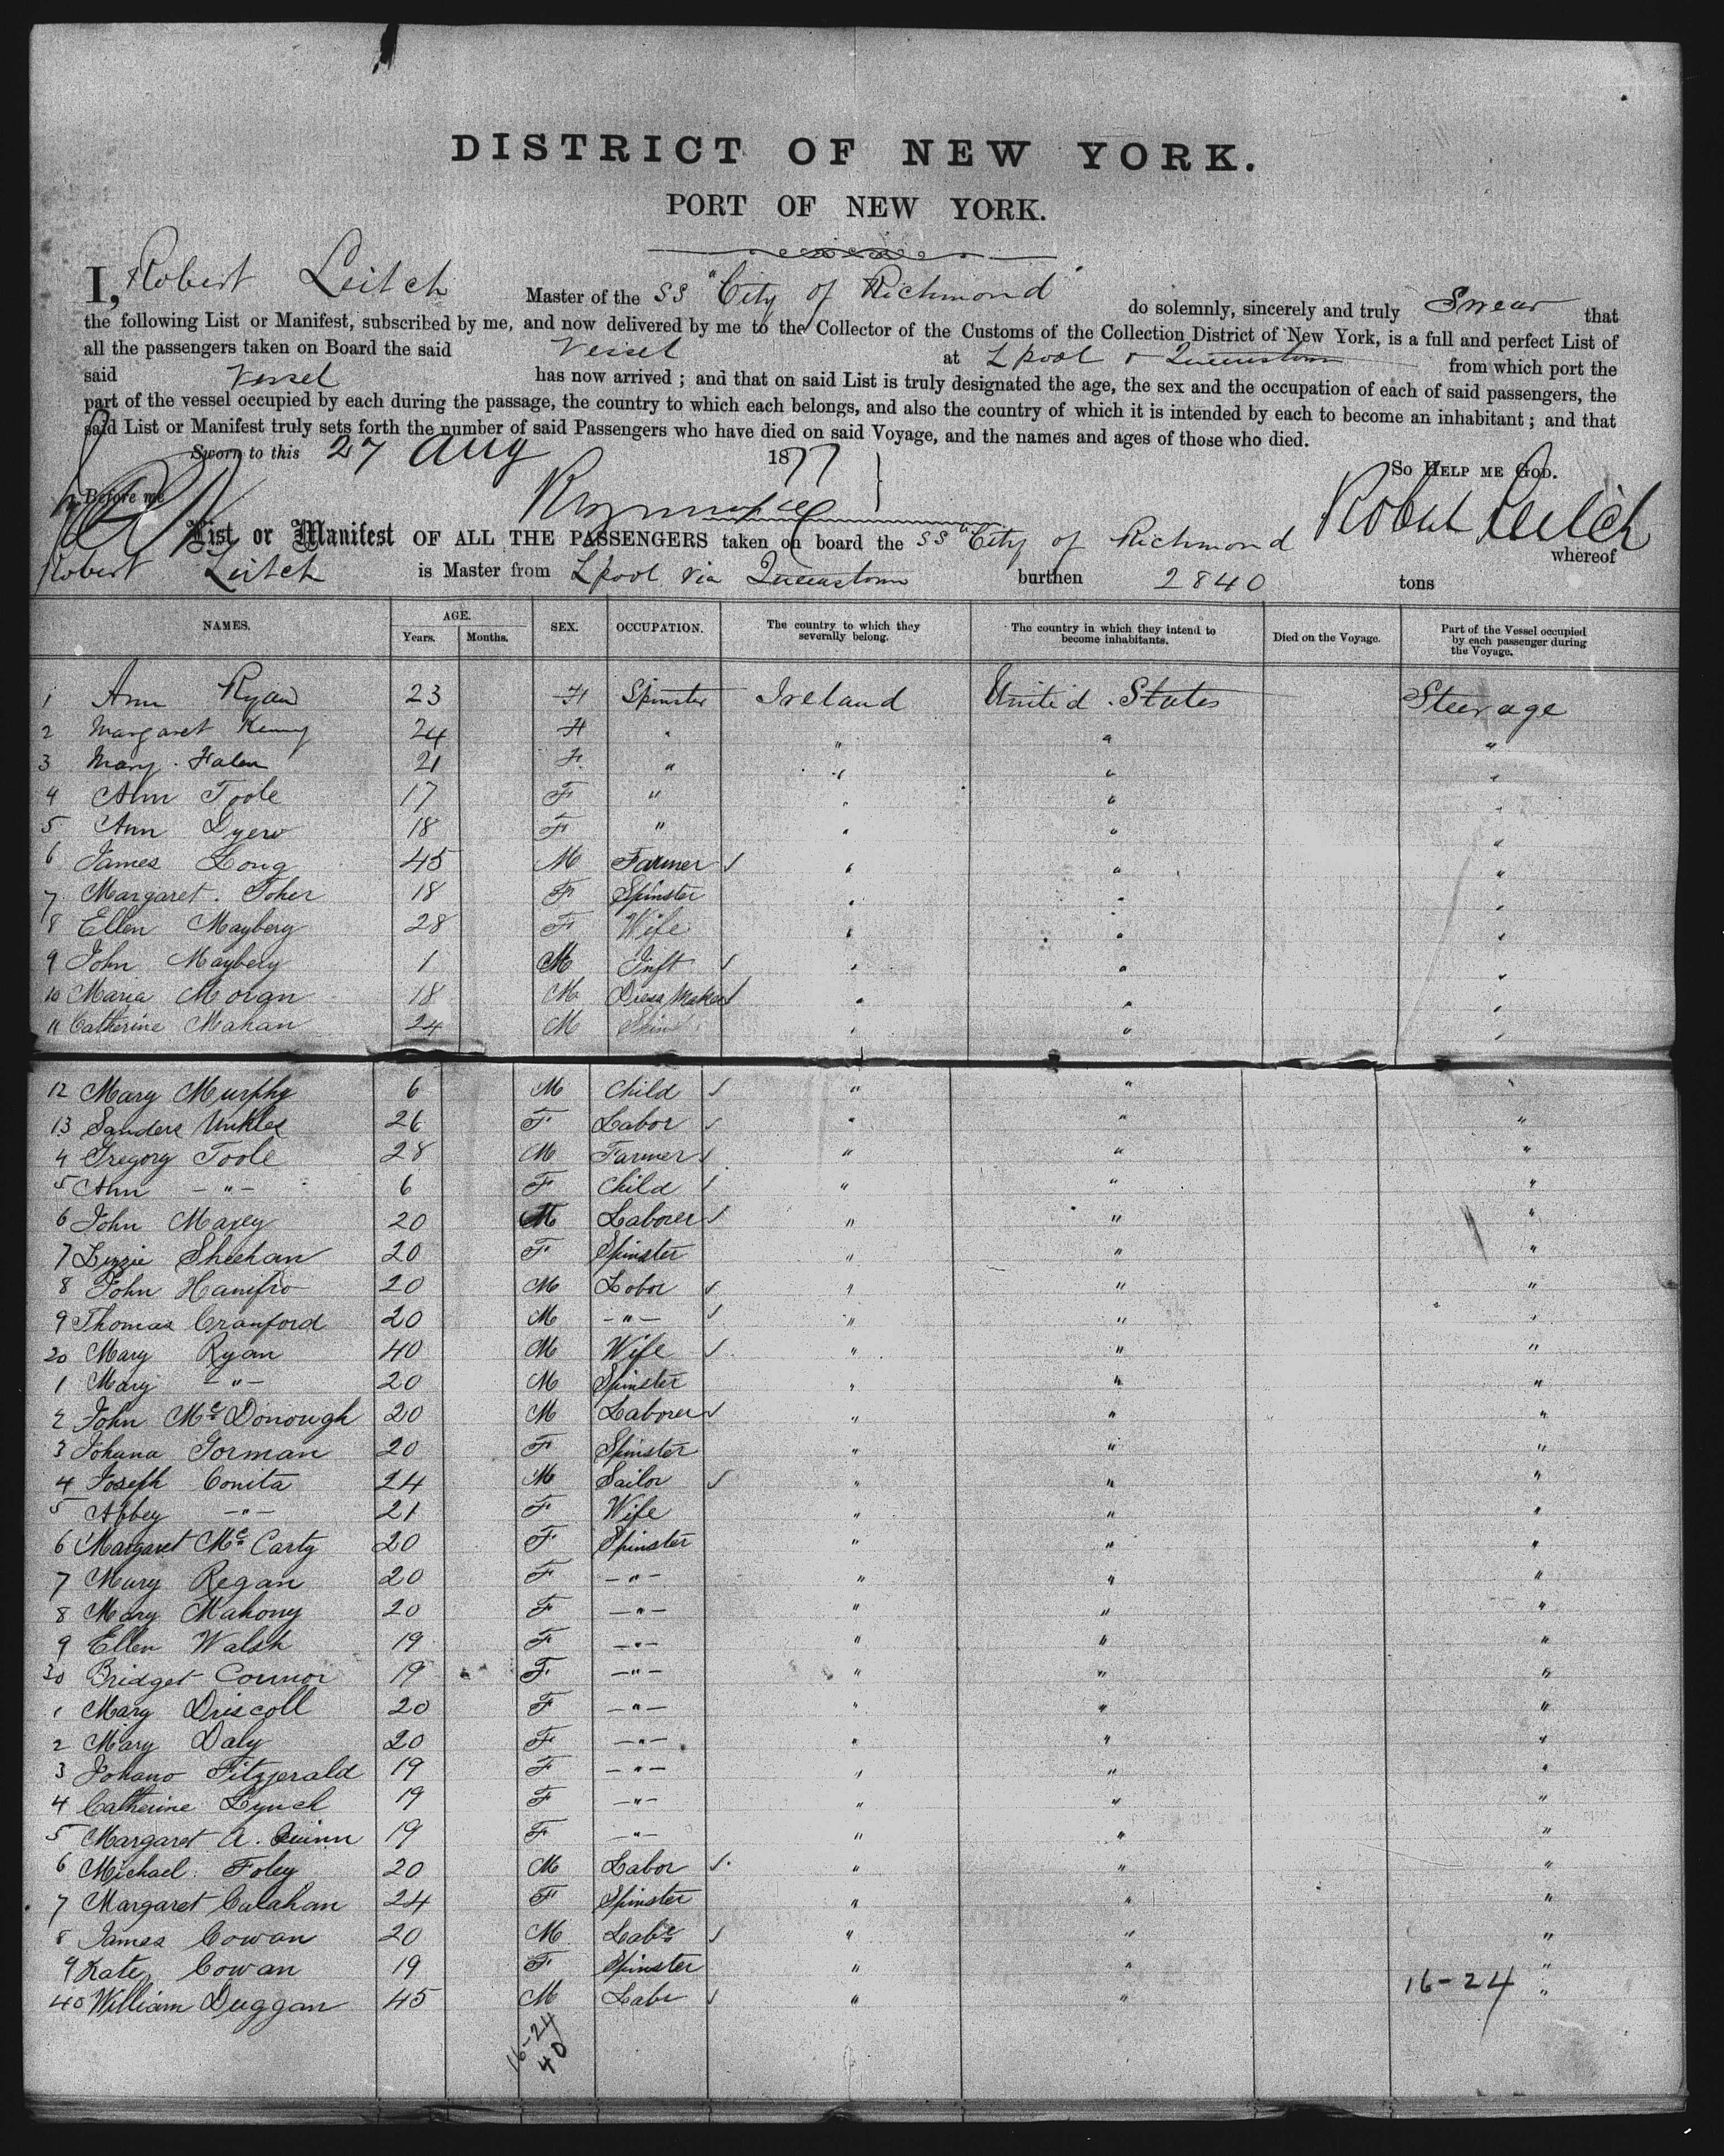 DISTRICT OF NEW YORK.
PORT OF NEW YORK.
I, Robert Leitch Master of the SS "City of Richmond" do solemnly, sincerely and truly Swear that
the following List or Manifest, subscribed by me, and now delivered by me to the Collector of the Customs of the Collection District of New York, is a full and perfect List of
all the passengers taken on Board the said Vessel at Lpool & Queenstown from which port the
said Vessel has now arrived ; and that on said List is truly designated the age, the sex and the occupation of each of said passengers, the
part of the vessel occupied by each during the passage, the country to which each belongs, and also the country of which it is intended by each to become an inhabitant ; and that
said List or Manifest truly sets forth the number of said Passengers who have died on said Voyage, and the names and ages of those who died.
Sworn to this 27 Aug 1877 So HELP ME GOD.
Before me Robert Leitch
List or Manifest OF ALL THE PASSENGERS taken on board the SS "City of Richmond whereof
Robert Leitch is Master from Lpool via Queenstown burthen 2840 tons
NAMES. AGE. Years. Months. SEX. OCCUPATION. The country to which they severally belong. The country in which they intend to become inhabitants. Died on the Voyage. Part of the Vessel occupied by each passenger during the Voyage.
1 Ann Ryan 23 F Spinster Ireland United States Steerage
2 Margaret Kenny 24 F " " " "
3 Mary Falen 21 F " " " "
4 Ann Toole 17 F " " " "
5 Ann Dyer 18 F " " " "
6 James Long 45 M Farmer " " "
7 Margaret Toher 18 F Spinster " " "
8 Ellen Mayberg 28 F Wife " " "
9 John Maybery 1 M Inft " " "
10 Maria Moran 18 M Dress Maker " " "
11 Catherine Mahan 24 M Spin " " "
12 Mary Murphy 6 M Child " " "
13 Sanders Unkles 26 F Labor " " "
4 Gregory Toole 28 M Farmer " " "
5 Ann - " - 6 F Child " " "
6 John Maxey 20 M Laborer " " "
7 Lizzie Sheehan 20 F Spinster " " "
8 John 20 M Labor " " "
9 Thomas Cranford 20 M - " - " " "
20 Mary Ryan 40 M Wife " " "
1 Mary - " - 20 M Spinster " " "
2 John McDonough 20 M Laborer " " "
3 Johana Gorman 20 F Spinster " " "
4 Joseph Conita 24 M Sailor " " "
5 Abbey - " - 21 F Wife " " "
6 Margaret McCarty 20 F Spinster " " "
7 Mary Regan 20 F - " - " " "
8 Mary Mahony 20 F - " - " " "
9 Ellen Walsh 19 F - " - " " "
30 Bridget Connor 19 F - " - " " "
1 Mary Driscoll 20 F - " - " " "
2 Mary Daly 20 F - " - " " "
3 Johano Fitzgerald 19 F - " - " " "
4 Catherine Lynch 19 F - " - " " "
5 Margaret A. Quinn 19 F - " - " " "
6 Michael Foley 20 M Labor " " "
7 Margaret Calahan 24 F Spinster " " "
8 James Cowan 20 M Labr " " "
9 Kate Cowan 19 F Spinster " " "
40 William Duggan 45 M Labr " " 16-24 "
16-24
40